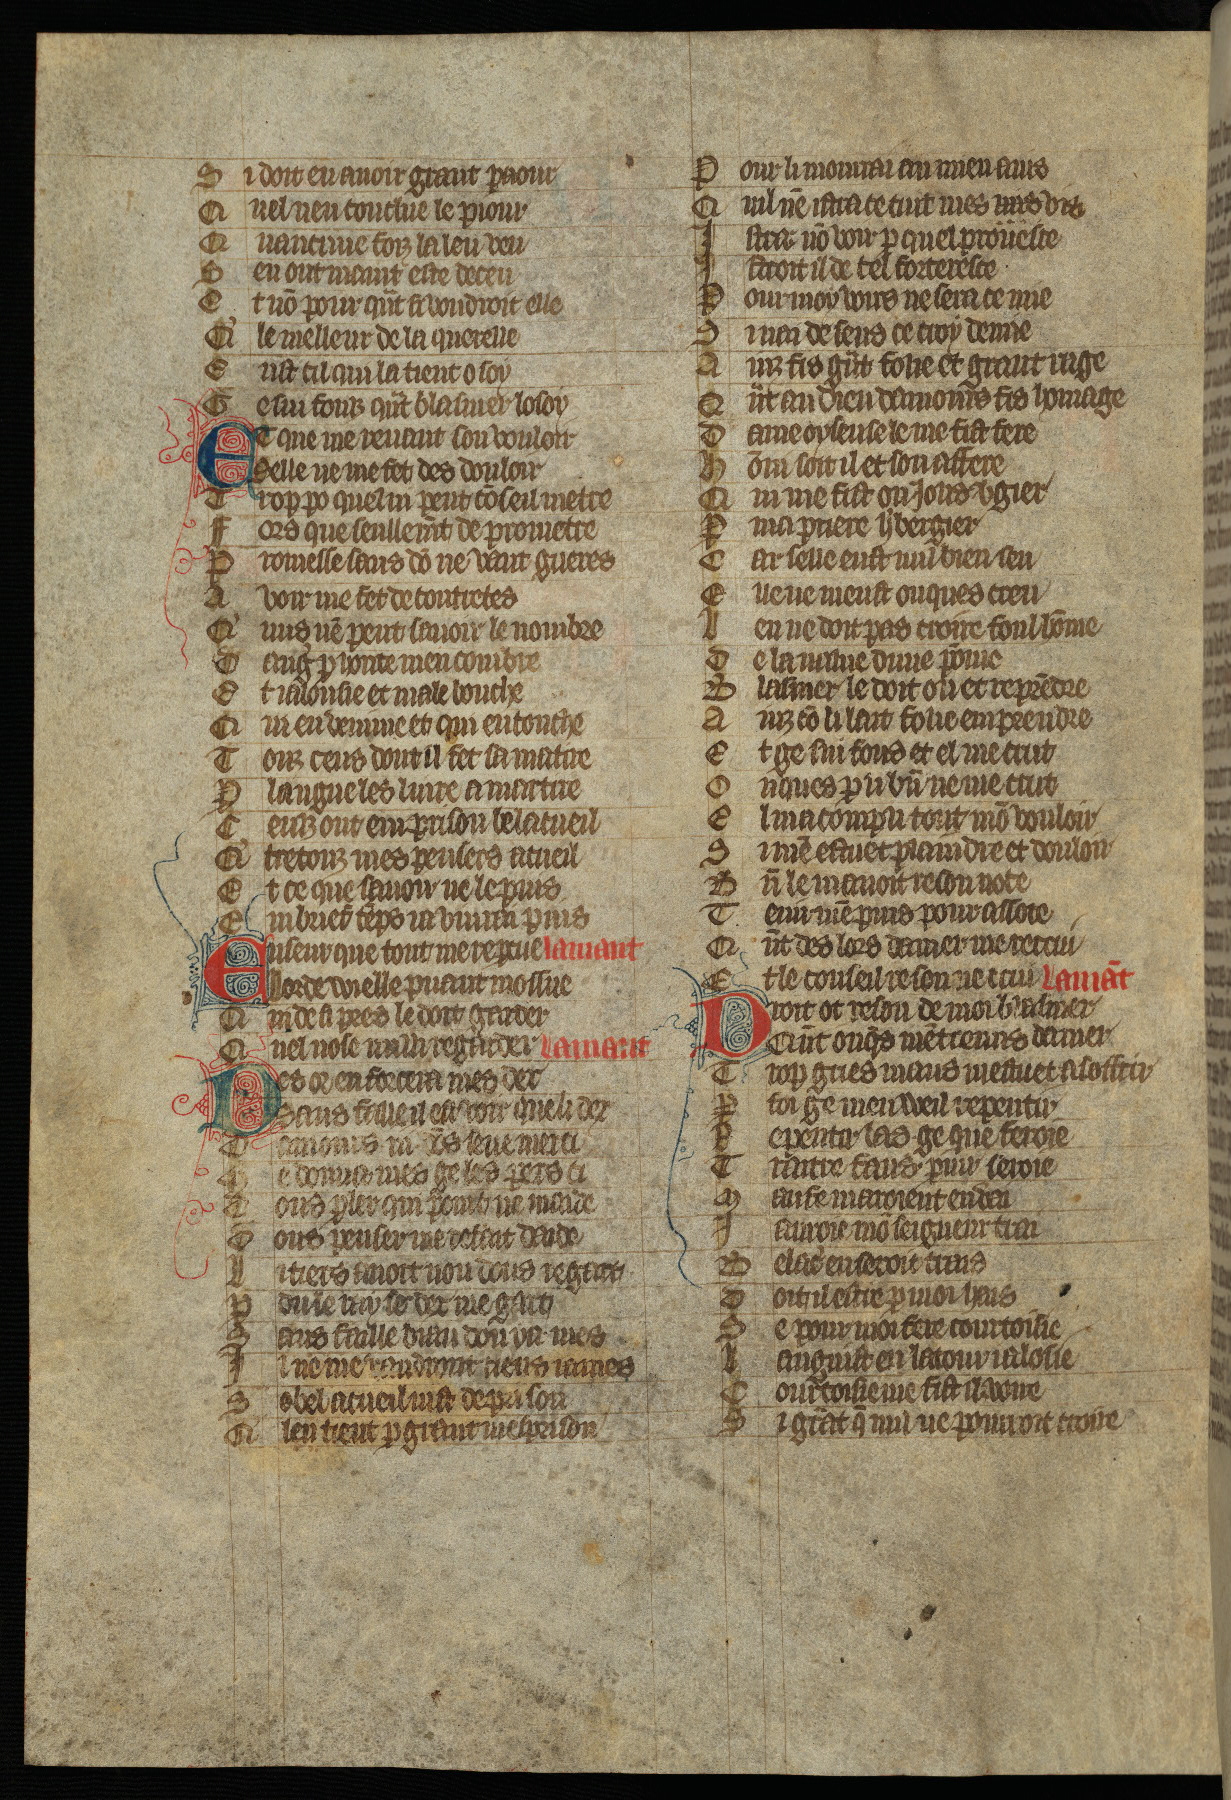 S i doit en avoir grant paour
Q uel nen conclue le piour
Q uantime foiz la len veu
S en ont maint este deceu
E t nō pour qñt si voudroit elle
Q le melleur de la querelle
E ust cil qui la tient o soy
G e sui fouz qñt blasmer losoy
ET que me revaut son vouloir
Selle ne me fet des douloir
T rop po quel ni peut cōseil metre
F ors que seullemt de prometre
P romesse sans dō ne vaut gueres
A voir me fet de contretes
Q nus nē peut savoir le nombre
D ang p honte men combre
E t ialousie et male bouche
Q ui envenime et qui entouche
T ouz ceus dont il fet sa matire
P langue les livre a martire
C euz ont emprison belacueil
Q tretouz mes pensers acueil
E t ce que savoir ne le puis
E n brief tēps ia vivrai puis
Euseur que tout me repue lamant
Lorde vielle puant mossue
Q ui de si pres le doit garder
Q uel nose nului regarder lamant
Des or enforcera mes der
Sans faille il est voir que li der
D amours iii dōs seue merci
M e donna mes ge les pers ci
D ous pler qui point ne maide
D ous penser me refait deaide
L i tiers avoit non dous regart
P du le rai se der me gart
S ans faille biau don va mes
I l ne me vaudront riens iames
S e bel acueil nist de prison
Q len tient p grant mesprison
P our li morrai au mien avis
Q uil nē istra ce cuit mes vis
I stra nō voir p quel proueste
I stroit il de tel forteresce
P our moy voirs ne sera ce mie
S i nai de sens ce croy demie
A inz fis gñt folie et grant rage
Q ñt au dieu damours fis homage
D ame oyseuse le me fist fere
H ōni soit il et son affere
Q ui me fist ou ioli vgier
P ma priere hebergier
C ar selle eust nul bien seu
E lle ne meust onques creu
L en ne doit pas croire foul hōme
D e la value dune pōme
B lasmer le doit on et reprēdre
A inz cō li lait folie emprendre
E t ge sui fous et el me crut
O nques p li bñ ne me crut
E l ma compli tout mō vouloir
S i mē estuet plaindre et douloir
B ñ le mavoit reson note
T enir mē puis pour assote
Q ñt des lors damer me recrui
E t le conseil reson ne crui lamāt
Droit ot reson de moi blasmer
Qñt onqs mētremis damer
T rop gries maus mestuet a losentir
P foi ge men weil repentir
R epentir las ge que feroie
T raitre faus hōni seroie
M aufe mavroient envai
I avroie mō seigneur trai
B elac en seroit trais
D oit il estre p moi hais
S e pour moi fere courtoisie
L anguist en la tour ialosie
C ourtoisie me fist il voire
S i grāt q nul ne pourroit croire